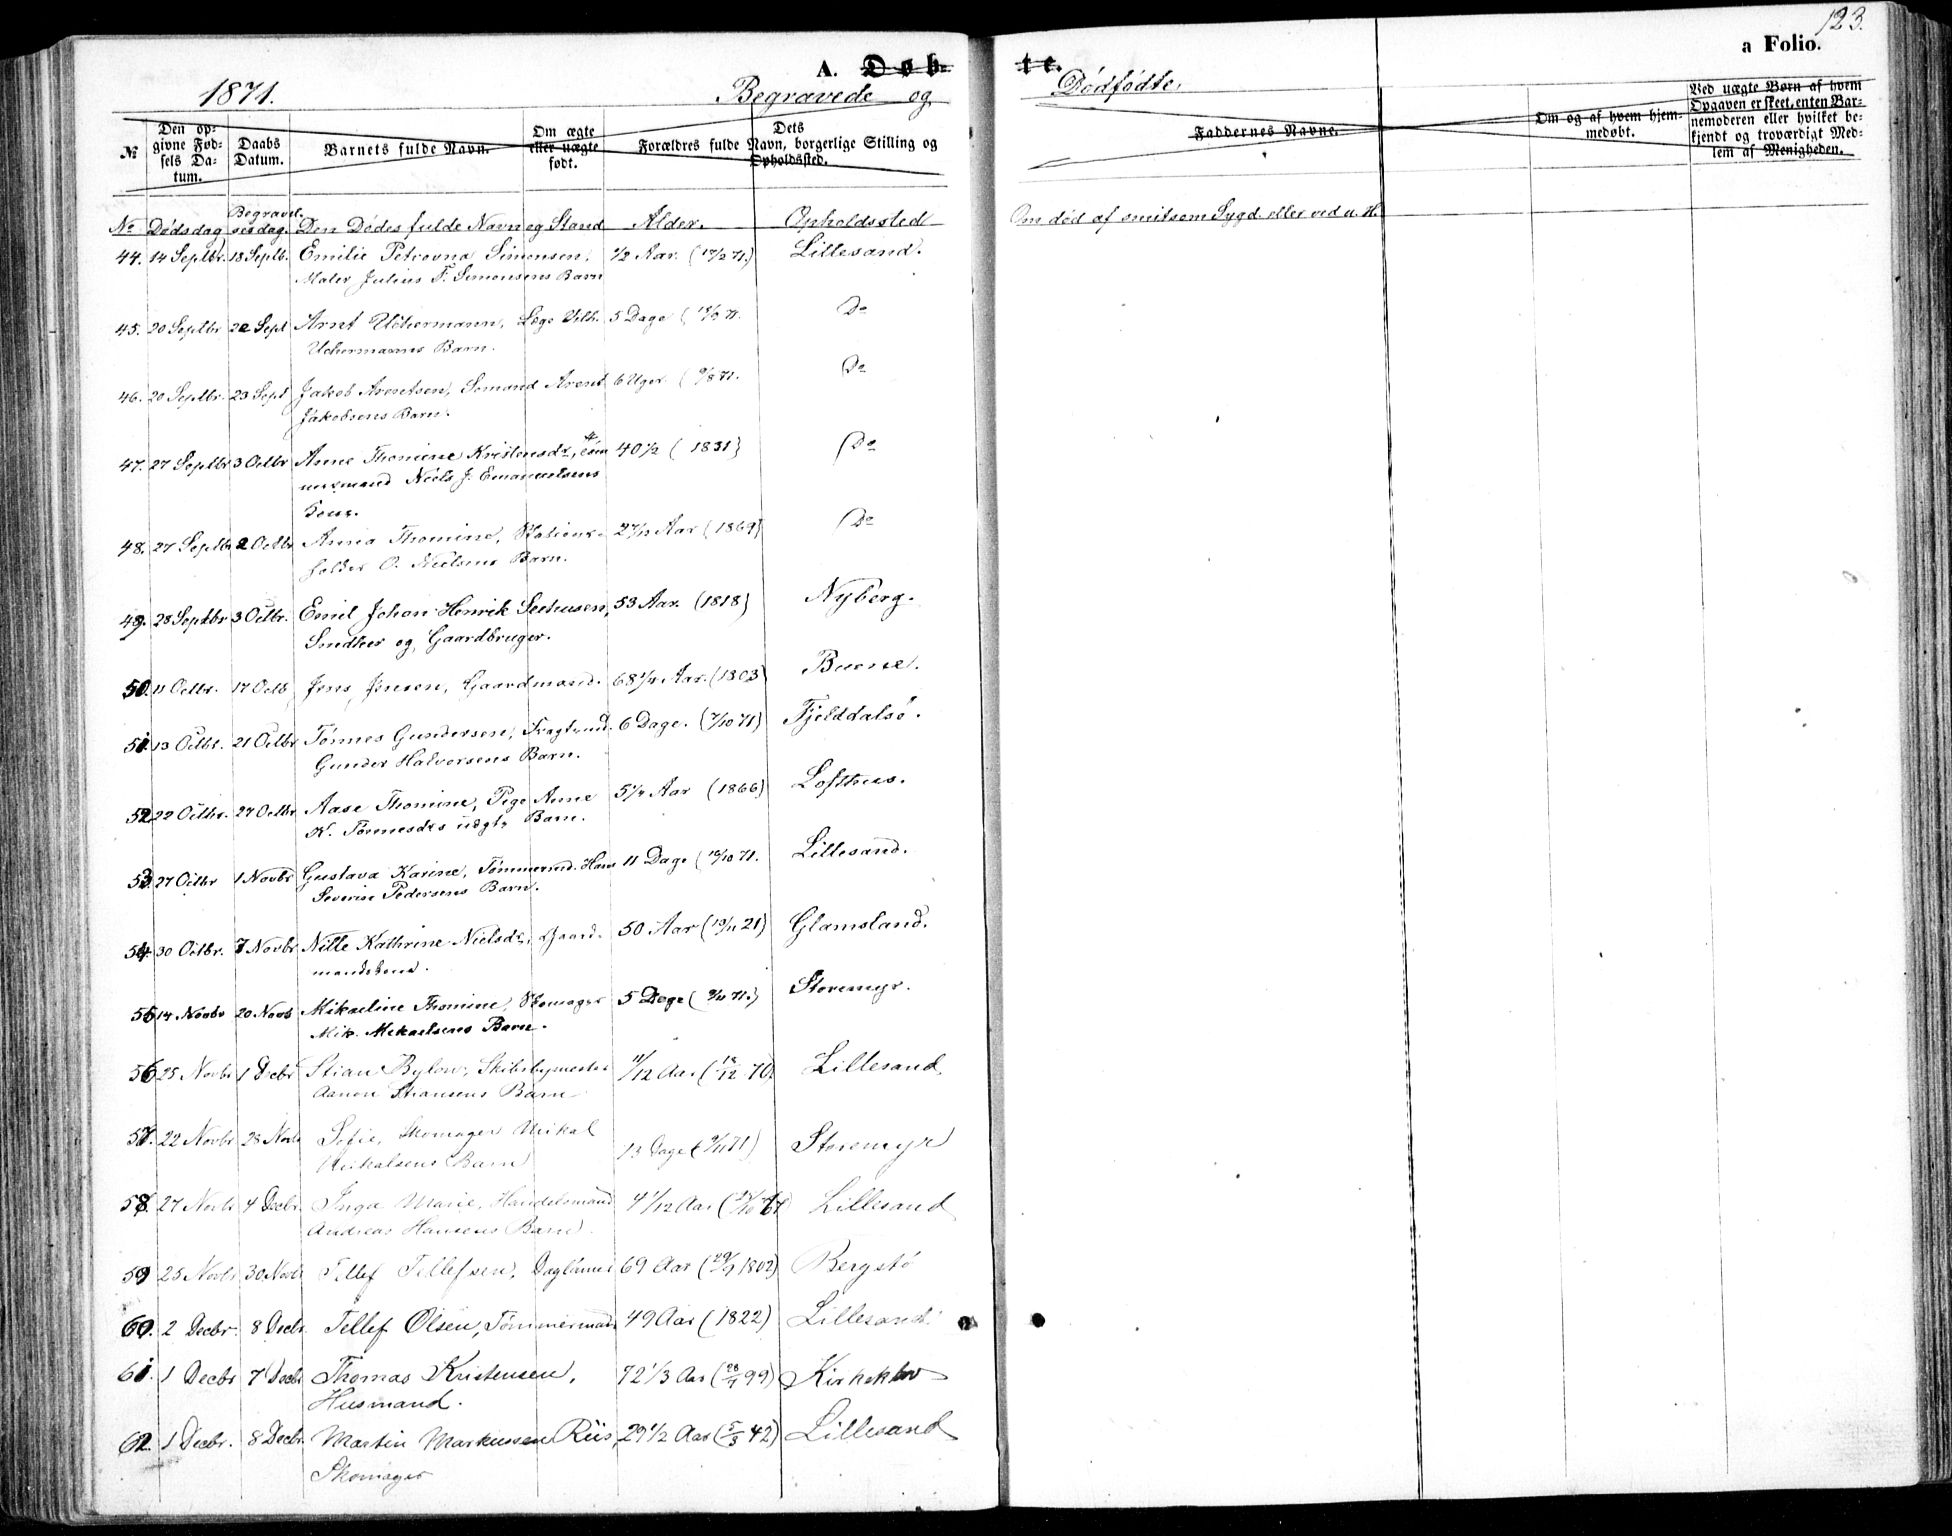 123.
a Folio.
A. Døb-
te.
1871.
Begravede og
Dødfødte.
№
Den op-
givne Fød-
sels Da-
tum.
Daabs
Datum.
Barnets fulde Navn.
Om ægte
eller uægte
født.
Dets
Forældres fulde Navn, borgerlige Stilling og
Opholdssted.
Faddernes Navne.
Om og af hvem hjem-
medøbt.
Ved uægte Børn af hvem
Opgaven er skeet, enten Bar-
nemoderen eller hvilket be-
kjendt og troværdigt Med-
lem af Menigheden.
No Dødsdag Begravel-
sesdag. Den Dødes fulde Navn og Stand Alder. Opholdssted
Om død af smitsom Sygd. eller ved u. H.
44. 14 Septbr. 18 Septb. Emilie Petrovna Simonsen, 1/2 Aar. (17/2 71.) Lillesand.
Maler Julius F. Simonsens Barn
45. 20 Septbr 22 Sept Arnt Uchermann, Læge Vilh. 5 Dage (15/9 71. Do
Uchermanns Barn.
46. 20 Septbr. 23 Sept Jakob Arentsen, Sømand Arent 6 Uger. (9/8 71. Do
Jakobsens Barn.
47. 27 Septbr 3 Octbr Anne Thomine Kristensdr, Tøm 40 1/2 (1831) Do
mermand Niels J. Emanuelsens
Kone.
48. 27 Septbr 2 Octbr Anna Thomine, Stations- 2 7/12 Aar (1869) Do
holder O. Nielsens Barn.
49. 28 Septbr 3 Octbr. Emil Johan Henrik Seehusen, 53 Aar. (1818) Nyberg.
Snedker og Gaardbruger.
50. 11 Octbr. 17 Octb Jens Jensen, Gaardmand. 68 1/4 Aar. (1803) Buene.
51. 13 Octbr. 21 Octbr Tønnes Gundersen, Fragtmd. 6 Dage. (7/10 71) Fjelddalsø.
Gunder Halvorsens Barn.
52 22 Octbr. 27 Octbr Aase Thomine, Pige Anne 5 1/4 Aar (1866) Lofthus.
K. Tønnesdrs uægte Barn.
53. 27 Octbr 1 Novbr Gustava Karine, Tømmermd. Hans 11 Dage (16/10 71. Lillesand.
Severin Pedersens Barn.
54. 30 Octbr. 7 Novbr Nille Kathrine Nielsdr, Gaard- 50 Aar (19/11 21) Glamsland.
mandskone.
55 14 Novbr 20 Novb Mikaeline Thomine, Skomager 5 Dage (9/11 71.) Storemyr.
Mik. Mikaelsens Barn.
56 25 Novbr 1 Decbr Stian Bylow, Skibsbymester 11/12 Aar (18/12 70. Lillesand
Aanon Stiansens Barn
57. 22 Novbr 28 Novbr Sofie, Skomager Mikal 13 Dage (9/11 71) Storemyr
Mikalsens Barn
58. 27 Novbr 4 Decbr. Inga Marie, Handelsmand 4 1/12 Aar Lillesand
Andreas Hansens Barn.
59 25 Novbr 30 Novbr Tellef Tellefsen, Dagløner 69 Aar (29/9 1802) Bergstø
60. 2 Decbr 8 Decbr. Tellef Olsen, Tømmermand 49 Aar (1822) Lillesand.
61. 1 Decbr 7 Decbr Thomas Kristensen, 72 1/3 Aar (28/7 99) Kirkeklev
Husmand.
62. 1 Decbr. 8 Decbr. Martin Markussen Riis, 29 1/2 Aar (5/3 42) Lillesand
Skomager